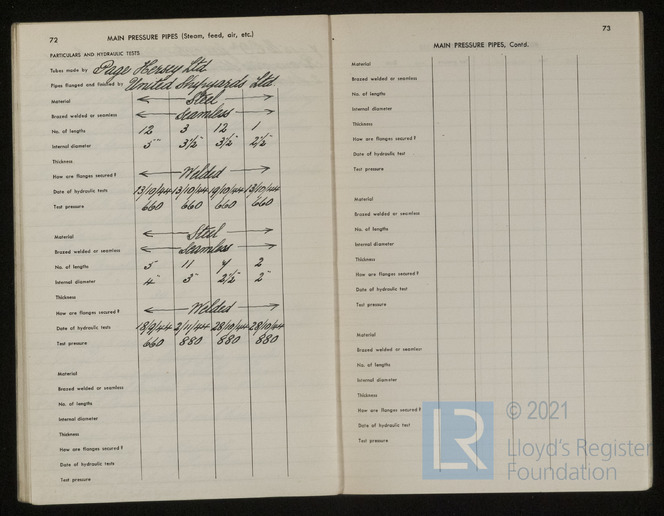 72
MAIN PRESSURE PIPES (Steam, feed, air, etc.)
PARTICULARS AND HYDRAULIC TESTS
Tubes made by Page Hersey Ltd
Pipes flanged and finished by United Shipyards Ltd
Material Steel
Brazed welded or seamless Seamless
No. of lengths 12 3 12 1
Internal diameter 5" 3½" 3½" 2½"
Thickness
How are flanges secured? Welded
Date of hydraulic tests 13/10/44 13/10/44 19/10/44 13/10/44
Test pressure 660 660 660 660
Material Steel
Brazed welded or seamless Seamless
No. of lengths 5 11 4 2
Internal diameter 4" 3" 2½" 2"
Thickness
How are flanges secured? Welded
Date of hydraulic tests 18/9/44 2/11/44 28/10/44 28/10/44
Test pressure 660 880 880 880
Material
Brazed welded or seamless
No. of lengths
Internal diameter
Thickness
How are flanges secured?
Date of hydraulic tests
Test pressure
73
MAIN PRESSURE PIPES, Contd.
Material
Brazed welded or seamless
No. of lengths
Internal diameter
Thickness
How are flanges secured?
Date of hydraulic test
Test pressure
Material
Brazed welded or seamless
No. of lengths
Internal diameter
Thickness
How are flanges secured?
Date of hydraulic tests
Test pressure
Material
Brazed welded or seamless
No. of lengths
Internal diameter
Thickness
How are flanges secured?
Date of hydraulic tests
Test pressure
LR
© 2021
Lloyd's Register
Foundation